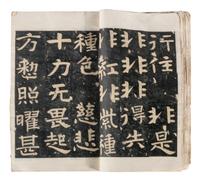 行住非是
非非非得失
非紅非紫種
種色慈悲
十力无畏起
方惣照曜甚